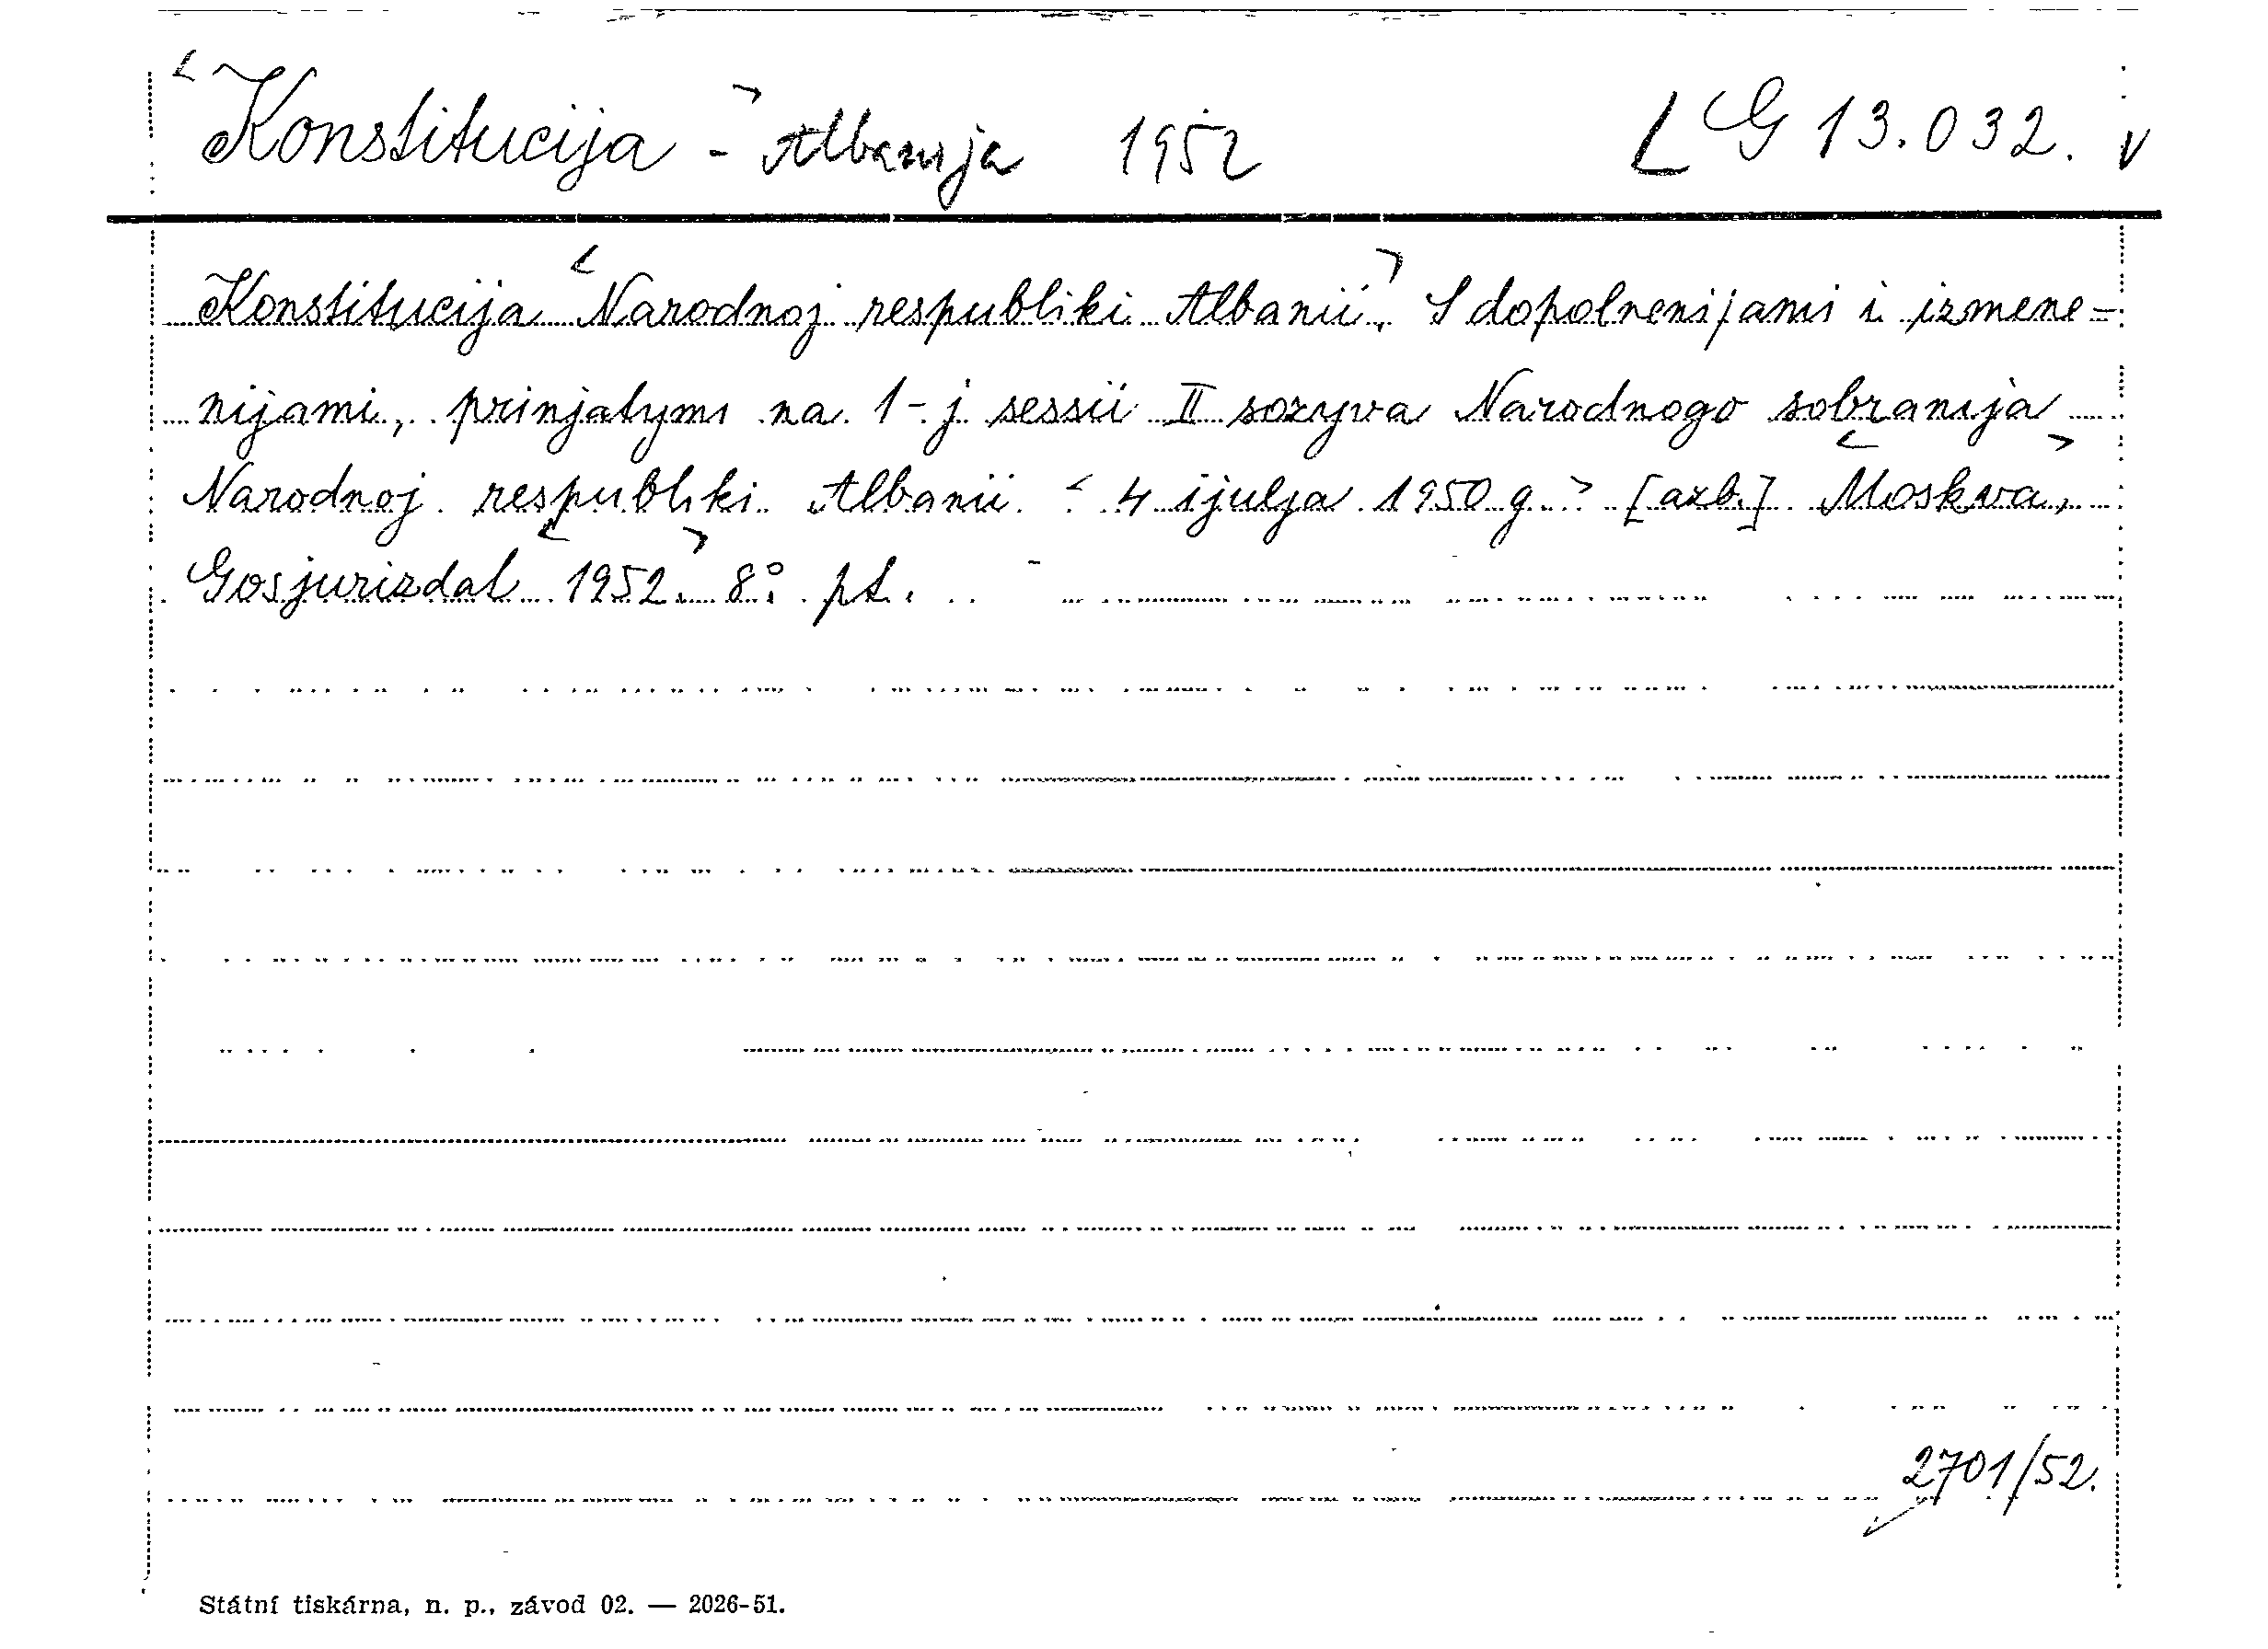 <Konstitucija -> Albanija 1952 LG 13.032. v
Konstitucija <Narodnoj respubliki Albanii>. S dopolnenijami i izmene-
nijami, prinjatymi na 1-j sessii II sozyva Narodnogo sobranija
Narodnoj respubliki Albanii < 4 ijulja 1950 g.> [azb.] <Moskva>,
Gosjurizdat <1952>. 8°. pt.
2701/52.
Státní tiskárna, n. p., závod 02. — 2026-51.